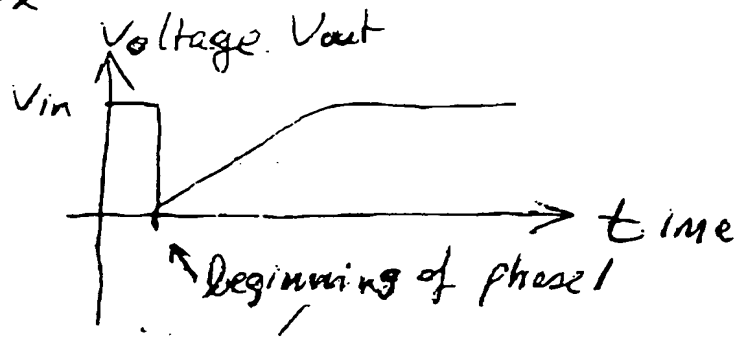 Voltage. Vout
Vin
time
beginning of phase 1